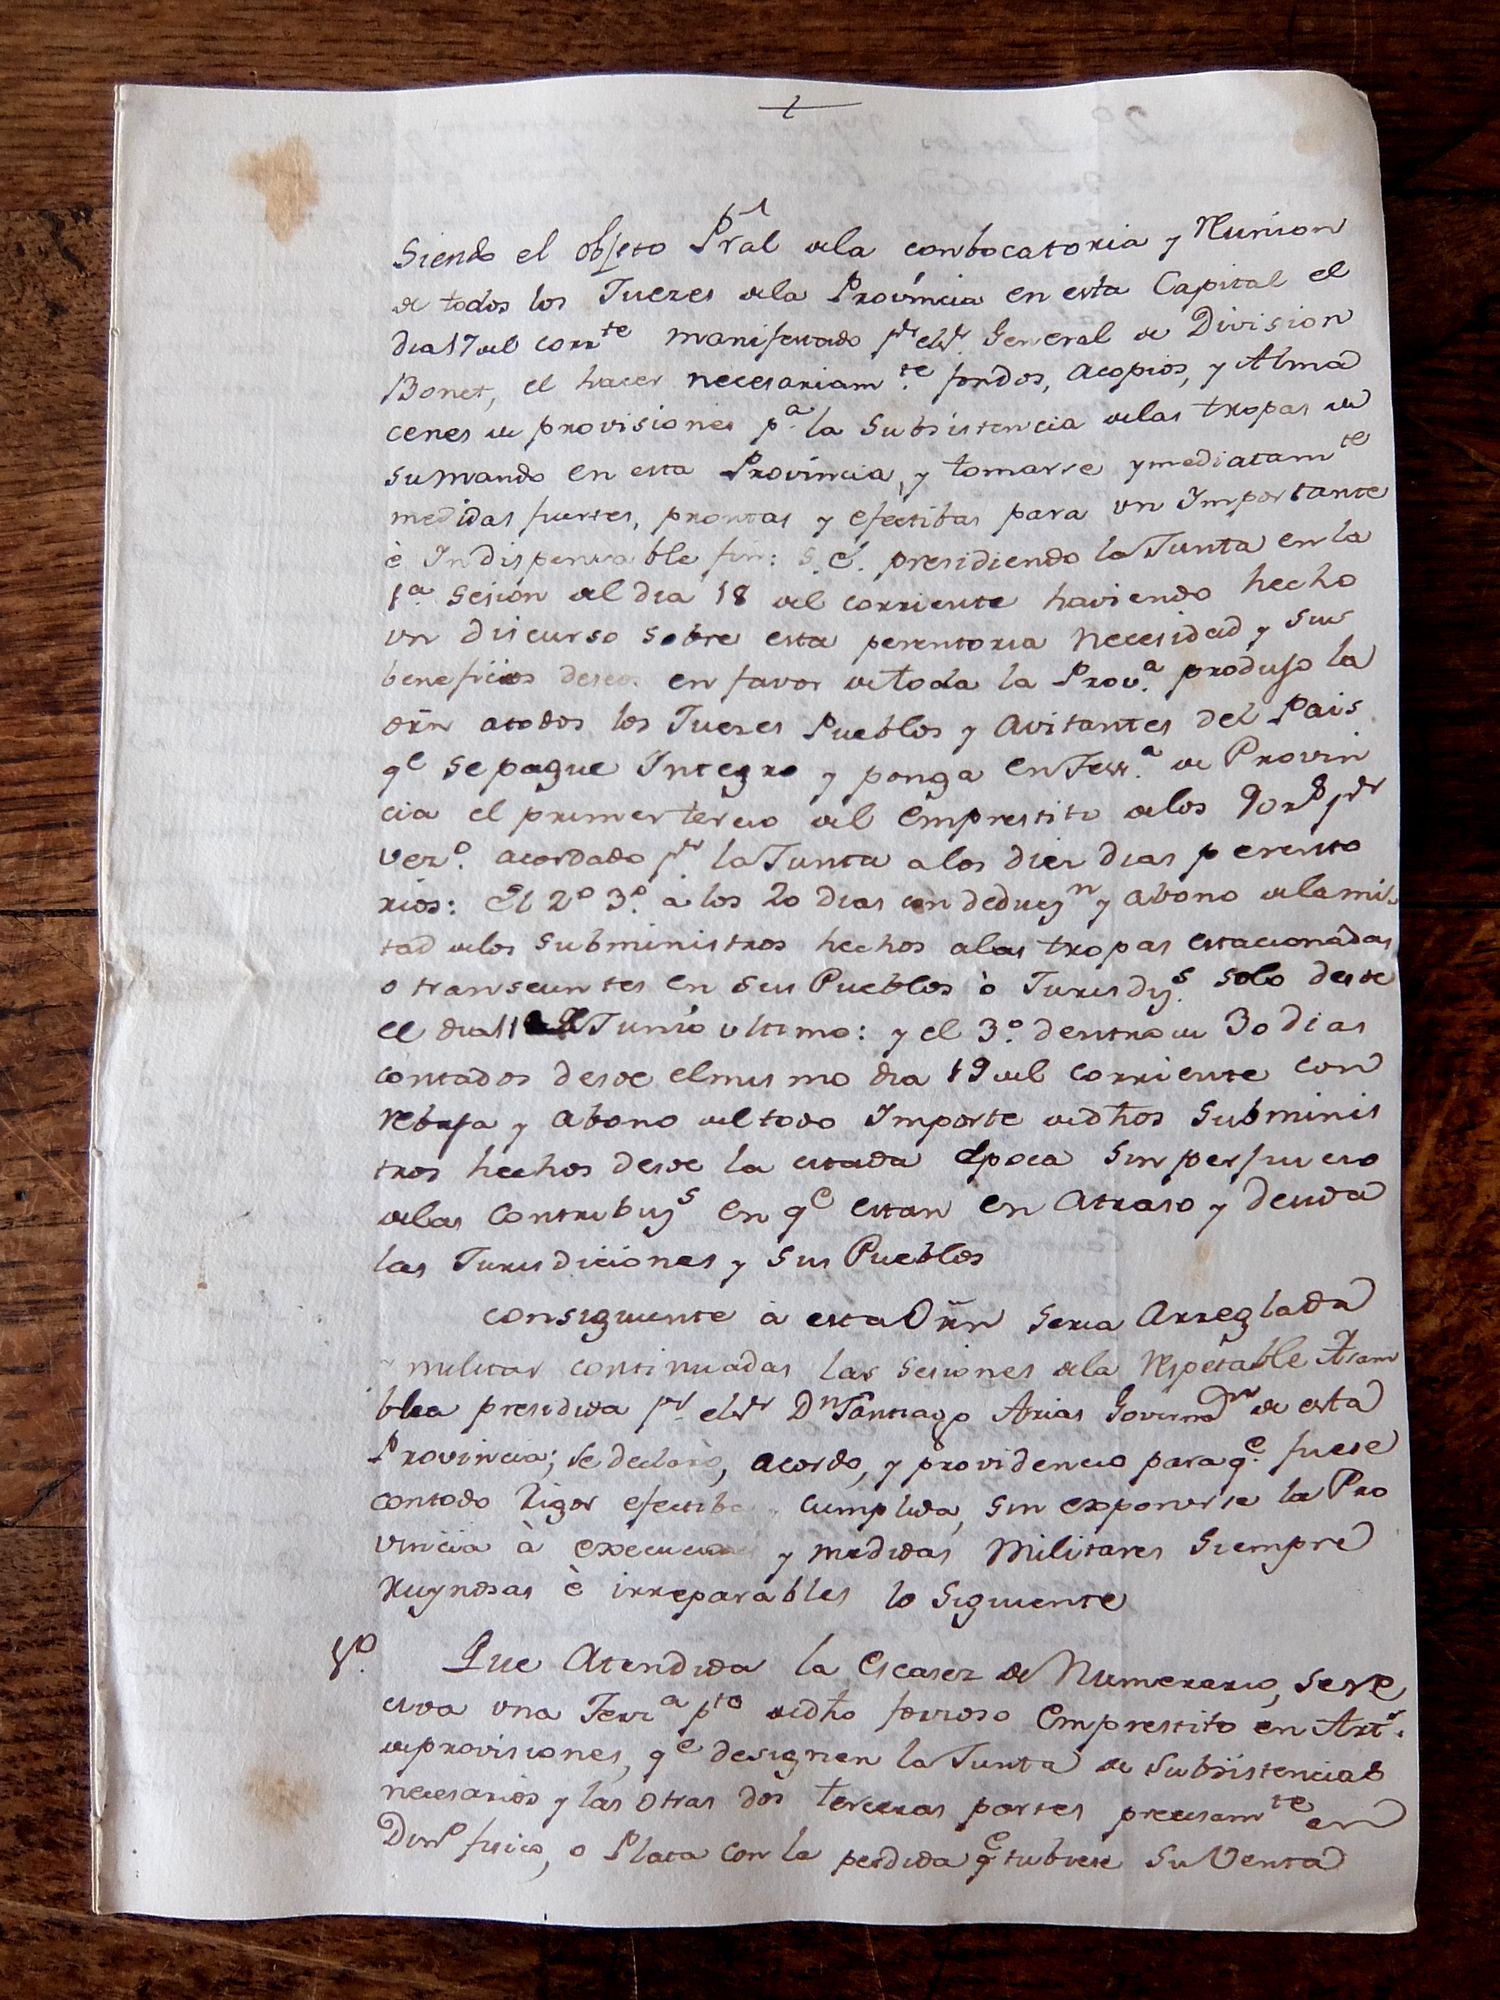 Siendo el objeto Pral dela conbocatoria y reunion
de todos los Jueces dela Provincia en esta Capital el
dia 17 del corrte manifestado pr el Sr. General de Division
Bonet, el hacer necesariamte. fondos, acopios, y Alma
cenes de provisiones pa. la subsistencia delas tropas de
su mando en esta Provincia, y tomarse ymediatamte
medidas fuertes, prontas y efectibas para un Importante
è Indispensable fin: S. E. presidiendo la Junta en la
1a. sesion del dia 18 del corriente haviendo hecho
un discurso sobre esta perentoria necesidad y sus
beneficios deseos en favor de toda la Prova. produjo la
orñ a todos los Jueces Pueblos y avitantes del Pais
qe se pague Integro y ponga en Tesra. de Provin
cia el primer tercio del emprestito delos
vezo. acordado pr. la Junta a los diez dias perento
rios: El 2o 3o. a los 20 dias con deducyn y abono dela mi
tad delos subministros hechos alas tropas estacionadas
o transeuntes en sus Pueblos ò Jurisdys. solo desde
el dia 1 Junio ultimo: y el 3o. dentro de 30 dias
contados desde el mismo dia 19 del corriente con
rebaja y abono del todo Importe de dhos subminis
tros hechos desde la citada epoca sin perjuicio
delas contribuys en qe estan en atraso y deuda
las Jurisdiciones y sus Pueblos
consiguiente à esta Orñ seria Arreglada
militar continuadas las sesiones dela respetable Asam
blea presidida pr. el Sr Dn Santiago Arias Governdor de esta
Provincia; se declarò, acordo, y providencio para qe. fuese
con todo rigor efectiba y cumplida, sin exponerse la Pro
vincia à execuciones y medidas Militares siempre
ruynosas è irreparables lo siguiente
1o. Que Atendida la escasez de Numerario, se re
civa una Tercra pte de dho forzoso Emprestito en Arts.
de provisiones, qe designen la Junta de Subsistencias
necesarios y las otras dos terceras partes precisamte en
Dinro fisico, o Plata con la perdida qe tubiese su Venta